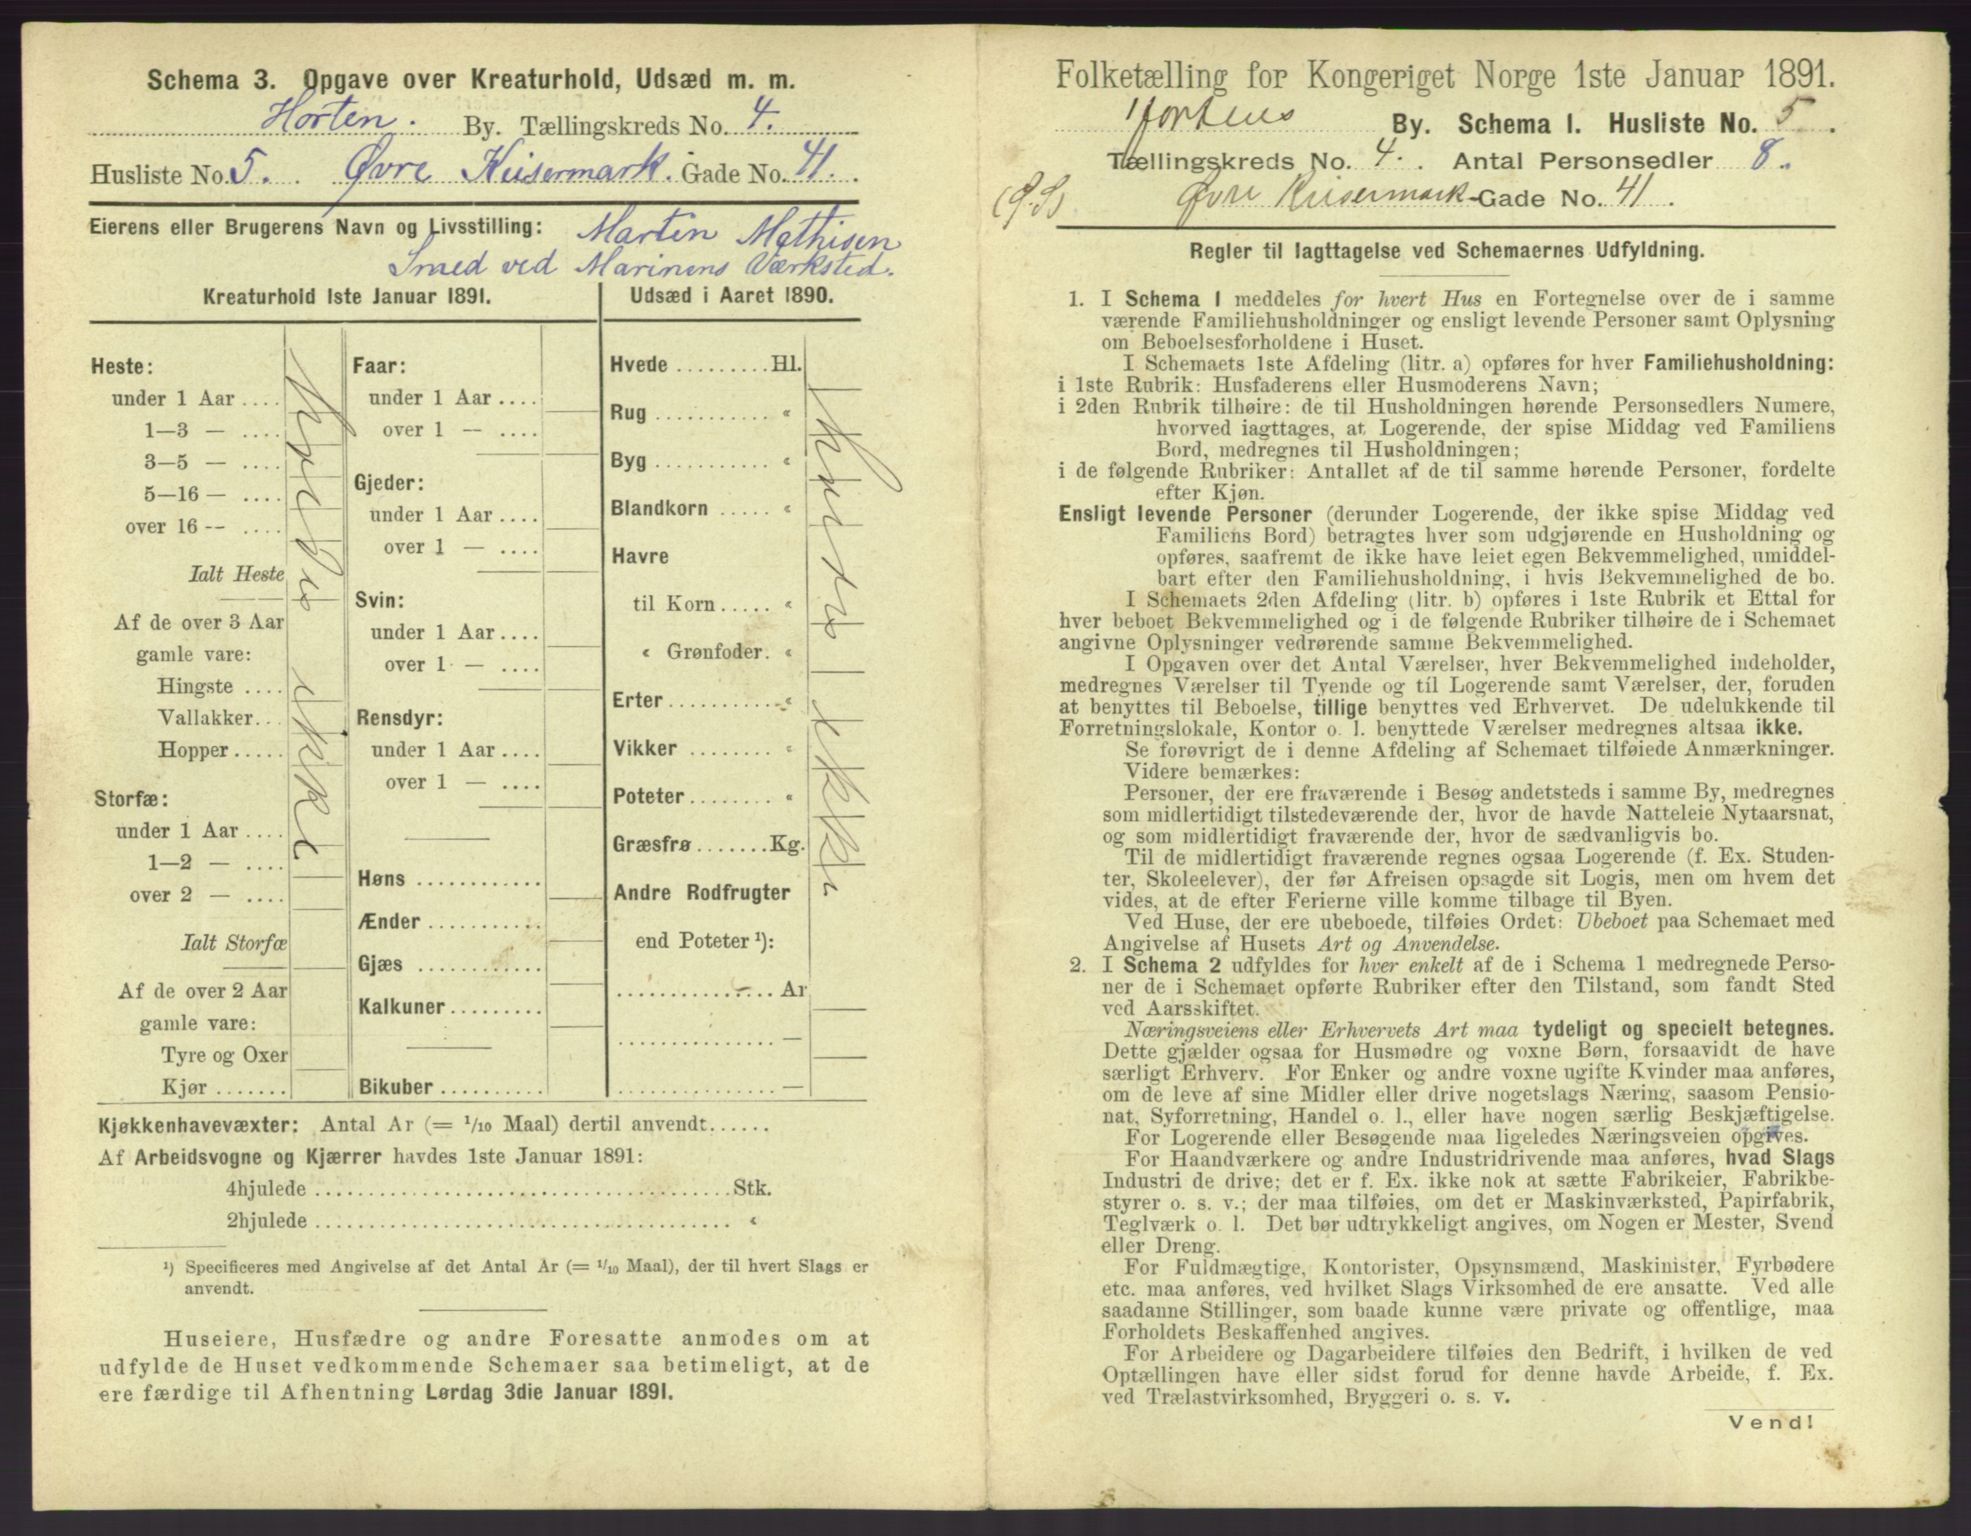 Schema 3. Opgave over Kreaturhold, Udsæd m. m.
Horten. By. Tællingskreds No. 4.
Husliste No. 5. Øvre Keisermark. Gade No. 41.
Eierens eller Brugerens Navn og Livsstilling: Martin Mathisen
Smed ved Marinens Værksted.
Kreaturhold 1ste Januar 1891.
Heste:
under 1 Aar ....
1—3 — ....
3—5 — ....
5—16 — ....
over 16 -- ....
Ialt Heste
Af de over 3 Aar
gamle vare:
Hingste ....
Vallakker...
Hopper .....
Storfæ:
under 1 Aar ....
1—2 — ....
over 2 — ....
Ialt Storfæ
Af de over 2 Aar
gamle vare:
Tyre og Oxer
Kjør .......
Faar:
under 1 Aar ....
over 1 — ....
Gjeder:
under 1 Aar ....
over 1 — ....
Svin:
under 1 Aar ....
over 1 — ....
Rensdyr:
under 1 Aar ....
over 1 — ....
Høns ............
Ænder ...........
Gjæs ............
Kalkuner.........
Bikuber ..........
Udsæd i Aaret 1890.
Hvede ......... Hl.
Rug ........... «
Byg ........... «
Blandkorn ..... «
Havre
til Korn ..... «
« Grønfoder. «
Erter ......... «
Vikker ........ «
Poteter ........ «
Græsfrø ....... Kg.
Andre Rodfrugter
end Poteter ¹):
............... Ar
............... —
............... —
Kjøkkenhavevæxter: Antal Ar (= 1/10 Maal) dertil anvendt......
Af Arbeidsvogne og Kjærrer havdes 1ste Januar 1891:
4hjulede ........................................ Stk.
2hjulede ........................................ «
¹) Specificeres med Angivelse af det Antal Ar (= 1/10 Maal), der til hvert Slags er
anvendt.
Huseiere, Husfædre og andre Foresatte anmodes om at
udfylde de Huset vedkommende Schemaer saa betimeligt, at de
ere færdige til Afhentning Lørdag 3die Januar 1891.
Folketælling for Kongeriget Norge 1ste Januar 1891.
Hortens By. Schema I. Husliste No. 5.
Tællingskreds No. 4. Antal Personsedler 8.
Øvre Keisermark-Gade No. 41.
Regler til Iagttagelse ved Schemaernes Udfyldning.
1. I Schema 1 meddeles for hvert Hus en Fortegnelse over de i samme
værende Familiehusholdninger og ensligt levende Personer samt Oplysning
om Beboelsesforholdene i Huset.
I Schemaets 1ste Afdeling (litr. a) opføres for hver Familiehusholdning:
i 1ste Rubrik: Husfaderens eller Husmoderens Navn;
i 2den Rubrik tilhøire: de til Husholdningen hørende Personsedlers Numere,
hvorved iagttages, at Logerende, der spise Middag ved Familiens
Bord, medregnes til Husholdningen;
i de følgende Rubriker: Antallet af de til samme hørende Personer, fordelte
efter Kjøn.
Ensligt levende Personer (derunder Logerende, der ikke spise Middag ved
Familiens Bord) betragtes hver som udgjørende en Husholdning og
opføres, saafremt de ikke have leiet egen Bekvemmelighed, umiddel-
bart efter den Familiehusholdning, i hvis Bekvemmelighed de bo.
I Schemaets 2den Afdeling (litr. b) opføres i 1ste Rubrik et Ettal for
hver beboet Bekvemmelighed og i de følgende Rubriker tilhøire de i Schemaet
angivne Oplysninger vedrørende samme Bekvemmelighed.
I Opgaven over det Antal Værelser, hver Bekvemmelighed indeholder,
medregnes Værelser til Tyende og til Logerende samt Værelser, der, foruden
at benyttes til Beboelse, tillige benyttes ved Erhvervet. De udelukkende til
Forretningslokale, Kontor o. l. benyttede Værelser medregnes altsaa ikke.
Se forøvrigt de i denne Afdeling af Schemaet tilføiede Anmærkninger.
Videre bemærkes:
Personer, der ere fraværende i Besøg andetsteds i samme By, medregnes
som midlertidigt tilstedeværende der, hvor de havde Natteleie Nytaarsnat,
og som midlertidigt fraværende der, hvor de sædvanligvis bo.
Til de midlertidigt fraværende regnes ogsaa Logerende (f. Ex. Studen-
ter, Skoleelever), der før Afreisen opsagde sit Logis, men om hvem det
vides, at de efter Ferierne ville komme tilbage til Byen.
Ved Huse, der ere ubeboede, tilføies Ordet: Ubeboet paa Schemaet med
Angivelse af Husets Art og Anvendelse.
2. I Schema 2 udfyldes for hver enkelt af de i Schema 1 medregnede Perso-
ner de i Schemaet opførte Rubriker efter den Tilstand, som fandt Sted
ved Aarsskiftet.
Næringsveiens eller Erhvervets Art maa tydeligt og specielt betegnes.
Dette gjælder ogsaa for Husmødre og voxne Børn, forsaavidt de have
særligt Erhverv. For Enker og andre voxne ugifte Kvinder maa anføres,
om de leve af sine Midler eller drive nogetslags Næring, saasom Pensio-
nat, Syforretning, Handel o. l., eller have nogen særlig Beskjæftigelse.
For Logerende eller Besøgende maa ligeledes Næringsveien opgives.
For Haandværkere og andre Industridrivende maa anføres, hvad Slags
Industri de drive; det er f. Ex. ikke nok at sætte Fabrikeier, Fabrikbe-
styrer o. s. v.; der maa tilføies, om det er Maskinværksted, Papirfabrik,
Teglværk o. l. Det bør udtrykkeligt angives, om Nogen er Mester, Svend
eller Dreng.
For Fuldmægtige, Kontorister, Opsynsmænd, Maskinister, Fyrbødere
etc. maa anføres, ved hvilket Slags Virksomhed de ere ansatte. Ved alle
saadanne Stillinger, som baade kunne være private og offentlige, maa
Forholdets Beskaffenhed angives.
For Arbeidere og Dagarbeidere tilføies den Bedrift, i hvilken de ved
Optællingen have eller sidst forud for denne havde Arbeide, f. Ex.
ved Trælastvirksomhed, Bryggeri o. s. v.
Vend!